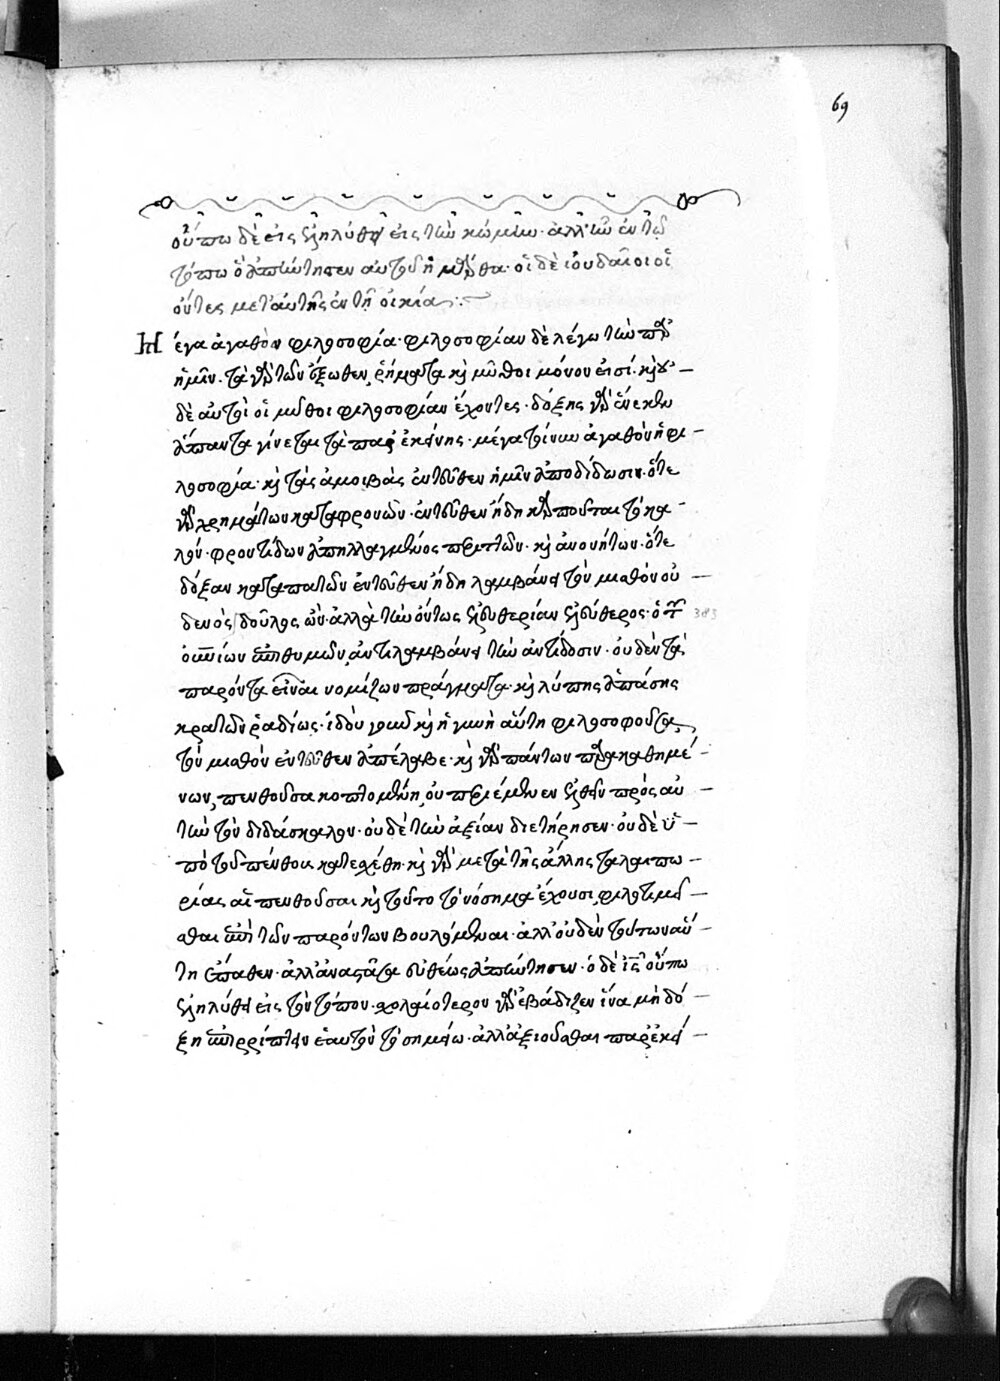 69
οὔπω δὲ εἰς ἐληλύθει εἰς τὴν κώμην· ἀλλ' ἦν ἐν τῷ
τόπω ὅ ἀπήντησεν αὐτοῦ ἡ μάρθα· οἱ δὲ ἰουδαῖοι οἱ
ὄντες μετ' αὐτῆς ἐν τῇ οἰκία
Μέγα ἀγαθὸν φιλοσοφία· φιλοσοφίαν δὲ λέγω τὴν παρ'
ἡμῖν· τὰ γὰρ τῶν ἔξωθεν, ῥήματα κὶ μῦθοι μόνον εἰσί· κὶ οὐ
δὲ αὐτοὶ οἱ μῦθοι φιλοσοφίαν ἔχοντες· δόξης γὰρ ἕνεκεν
ἅπαντα γίνεται τὰ παρ' ἐκείνης· μέγα τοίνυν ἀγαθὸν ἡ φι
λοσοφία· κὶ τὰς ἀμοιβὰς ἐντεῦθεν ἡμῖν ἀποδίδωσιν· ὅτε
γὰρ χρημάτων καταφρονῶν· ἐντεῦθεν ἤδη καρποῦται τὸ κα
λόν· φροντίδων ἀπηλλαγμένος περιττῶν· κὶ ἀνονήτων· ὅτε
δόξαν καταπατῶν ἐντεῦθεν ἤδη λαμβάνει τὸν μισθὸν οὐ
δενὸς δοῦλος ὢν· ἀλλὰ τὴν ὄντως ἐλευθερίαν ἐλεύθερος· ὁ τ 383
οὐνίων ἐπιθυμῶν, ἀντιλαμβάνει τὴν ἀντίδοσιν· οὐδὲν τὰ
παρόντα εἶναι νομίζων πράγματα· κὶ λύπης ἁπάσης
κρατῶν ῥαδίως· ἰδοὺ γοῦν κὶ ἡ γυνὴ αὕτη φιλοσοφοῦσα,
τὸν μισθὸν ἐντεῦθεν ἀπέλαβε· κὶ γὰρ πάντων παρακαθημέ
νων, πενθούσα κοπτομένη, οὐ περιέμενεν ἐλθεῖν πρὸς αὐ
τὴν τὸν διδάσκαλον· οὐδὲ τὴν ἀξίαν διετήρησεν· οὐδὲ ὑ
πὸ τοῦ πένθους κατεσχέθη· κὶ γὰρ μετὰ τῆς ἄλλης ταλαιπω
ρίας αἱ πενθοῦσαι κὶ τοῦτο τὸ νόσημα ἔχουσι, φιλοτιμεῖ
σθαι ἐπὶ τῶν παρόντων βουλόμεναι· ἀλλ' οὐδὲν τούτων αὕ
τη ἔπαθεν· ἀλλ' ἀναστᾶσα εὐθέως ἀπήντησεν· ὁ δὲ ις οὔπω
ἐληλύθει εἰς τὸν τόπον· σχολαιότερον γὰρ ἐβάδιζεν ἵνα μὴ δό
ξη ἐπιρρίπτειν ἑαυτὸν τῷ σημείω· ἀλλ' ἀξιοῦσθαι παρ' ἐκεί